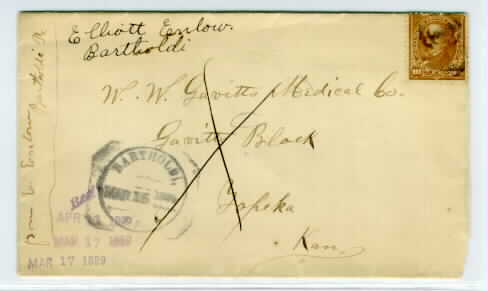 Elliott Enlow.
Bartholdi
W. W. Gavitts Medical Co.
Gavitt Block
Topeka
Kan.
BARTHOLDI,
MAR 15
Rec
APR 1889
MAR 17 1889
MAR 17 1889
Enlow Bartholdi